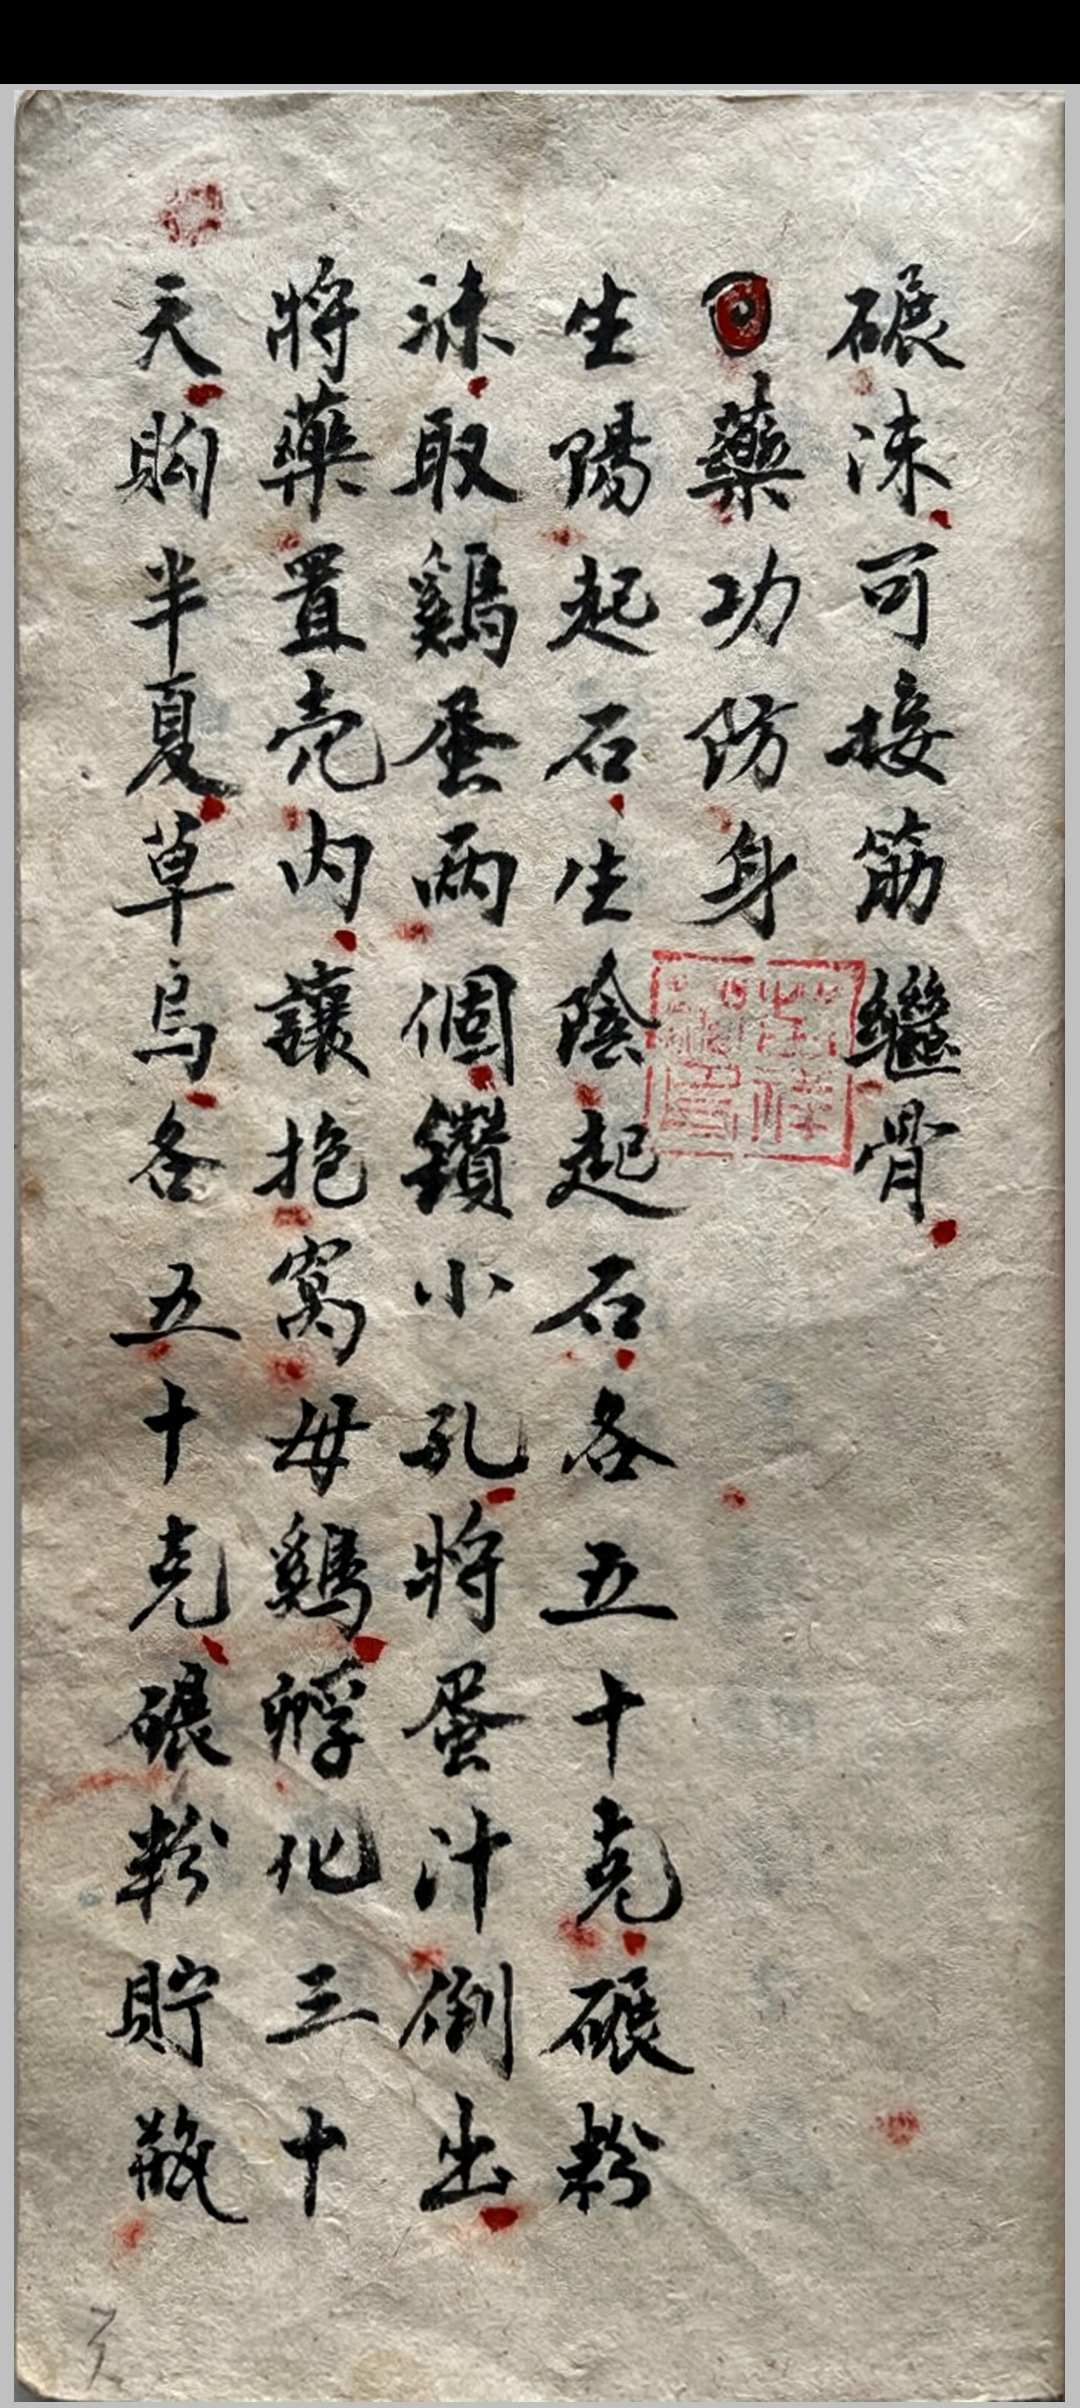 碾沫可接筋繼骨
藥功防身
生陽起石生陰起石各五十克碾粉
沫取鷄蛋兩個鑽小孔將蛋汁倒出
將藥置壳内讓抱窩母鷄孵化三十
天胸半夏草烏各五十克碾粉貯瓶